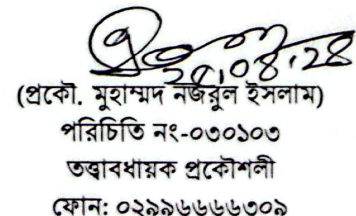 ২৫.০৪.২৪
(প্রকৌ. মুহাম্মদ নজরুল ইসলাম)
পরিচিতি নং-০৩০১০৩
তত্ত্বাবধায়ক প্রকৌশলী
ফোন: ০২৯৯৬৬৬৬৩০৯